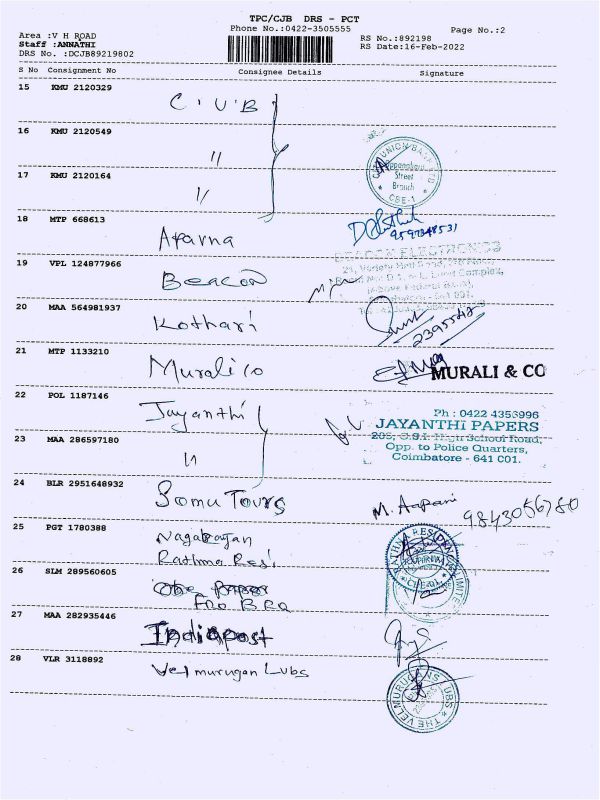 TPC/CJB DRS - PCT
Phone No.:0422-3505555
Page No.:2
Area :V H ROAD
Staff :ANNATHI
DRS No. :DCJB89219802
RS No.:892198
RS Date:16-Feb-2022
S No Consignment No Consignee Details Signature
15 KMU 2120329 C.U.B
16 KMU 2120549 "
17 KMU 2120164 "
Street
Branch
CBE-1
18 MTP 668613 Aparna
19 VPL 124877966 Beacon
BEACON ELECTRONICS
20 MAA 564981937 Kothari
2395542
21 MTP 1133210 Murali co
MURALI & CO
22 POL 1187146 Jayanthi
Ph : 0422 4356996
JAYANTHI PAPERS
205, C.S.I. High School Road,
Opp. to Police Quarters,
Coimbatore - 641 001.
23 MAA 286597180 "
24 BLR 2951648932 Somu Tours
9843056780
25 PGT 1780388 Nagarajan
Rathna Resi
26 SLM 289560605
27 MAA 282935446 Indiapost
28 VLR 3118892 Velmurugan Lubs
THE VELMURUGANS LUBS